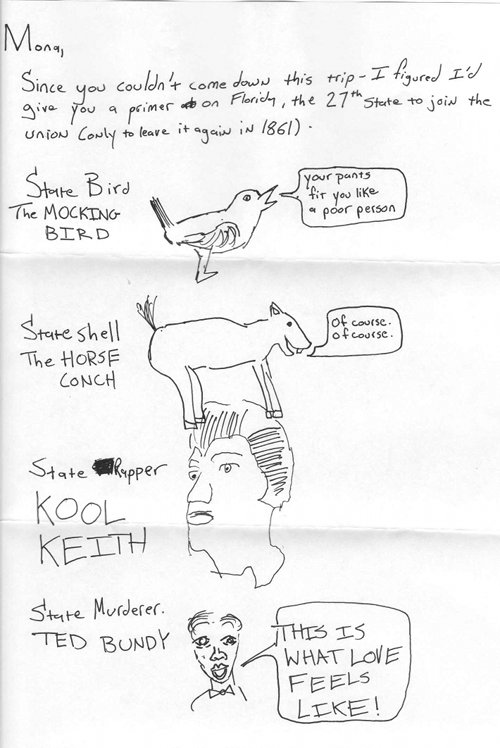 Mona,
Since you couldn't come down this trip - I figured I'd
give you a primer on Florida, the 27th State to join the
union (only to leave it again in 1861).
State Bird
The MOCKING
BIRD
your pants
fit you like
a poor person
State shell
The HORSE
CONCH
Of course.
of course.
State Rapper
KOOL
KEITH
State Murderer.
TED BUNDY
THIS IS
WHAT LOVE
FEELS
LIKE!